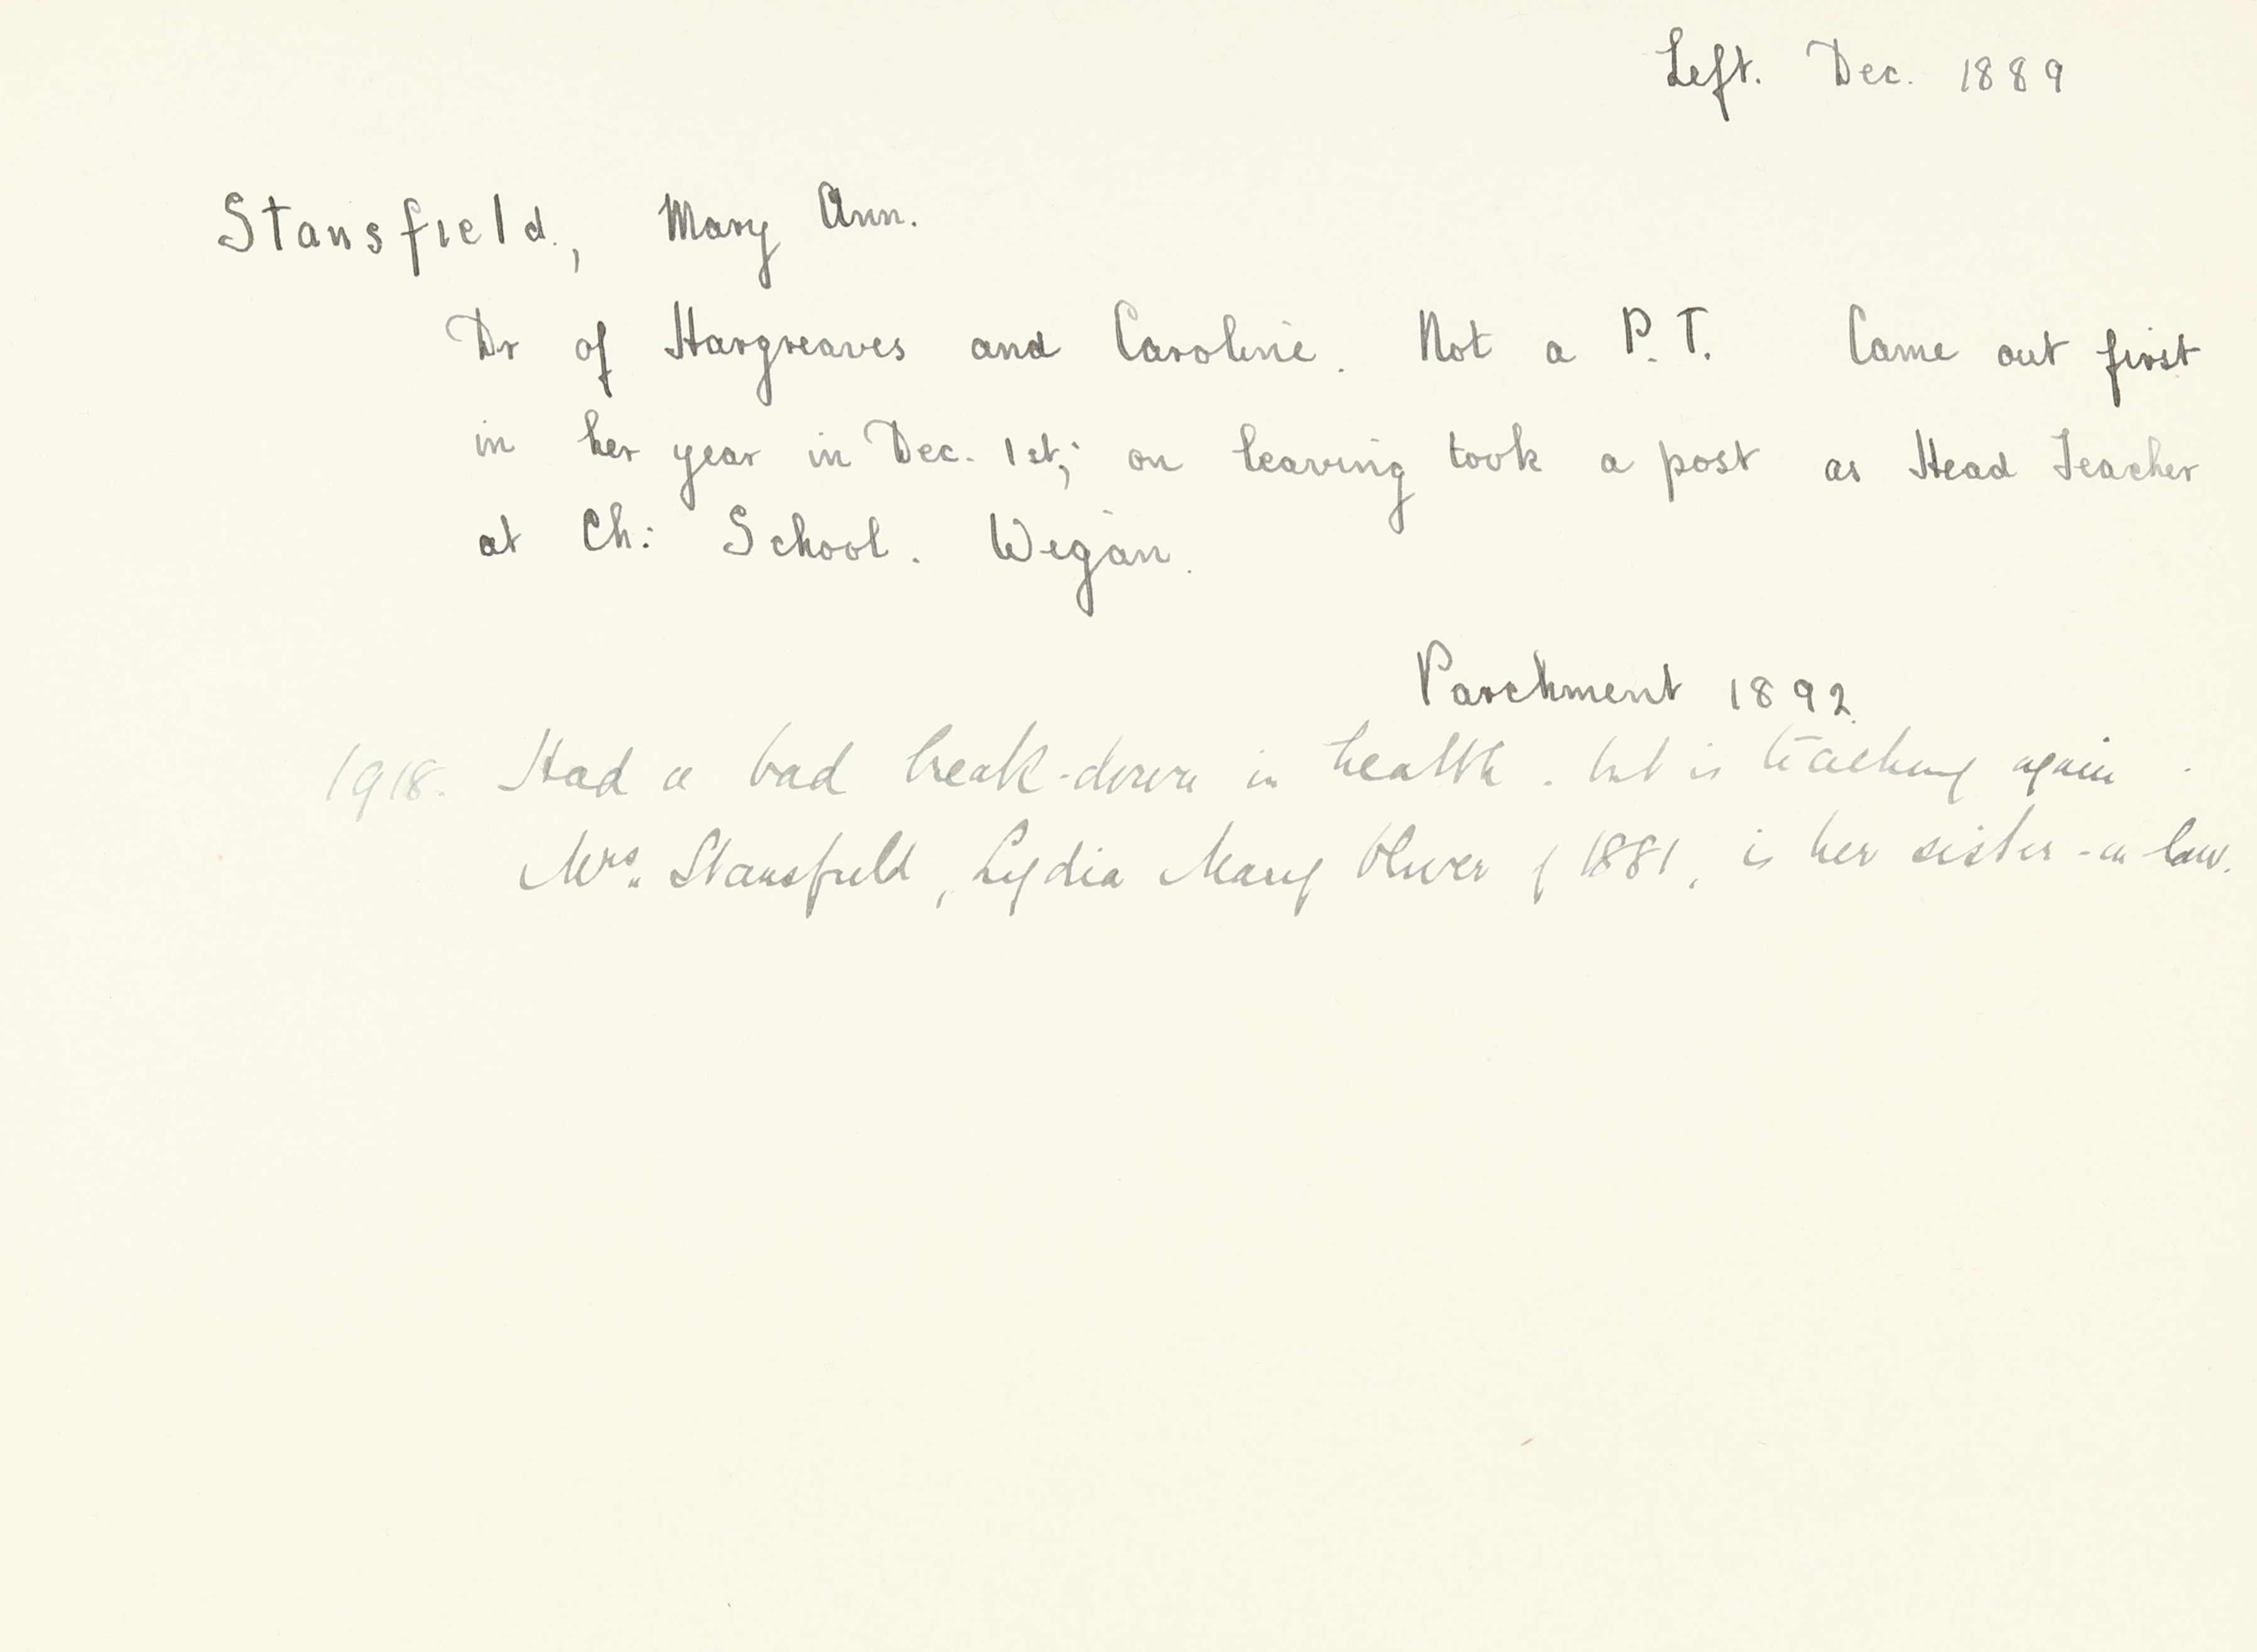 Left. Dec. 1889
Stansfield, Mary Ann.
Dr of Hargreaves and Caroline. Not a P.T. Came out first
in her year in Dec. 1st; on leaving took a post as Head Teacher
at Ch: School. Wigan.
Parchment 1892.
1918. Had a bad break-down in health. but is teaching again.
Mrs. Stansfield, Lydia Mary Oliver of 1881, is her sister-in law.